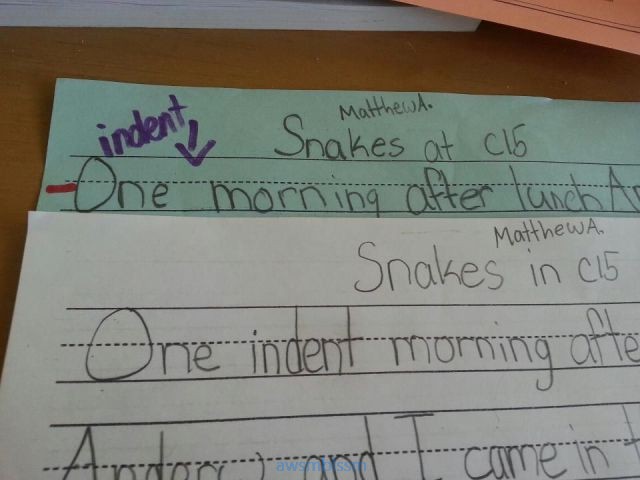 MatthewA.
indent
Snakes at C15
One morning after lunch
MatthewA.
Snakes in C15
One indent morning afte
and I came in t